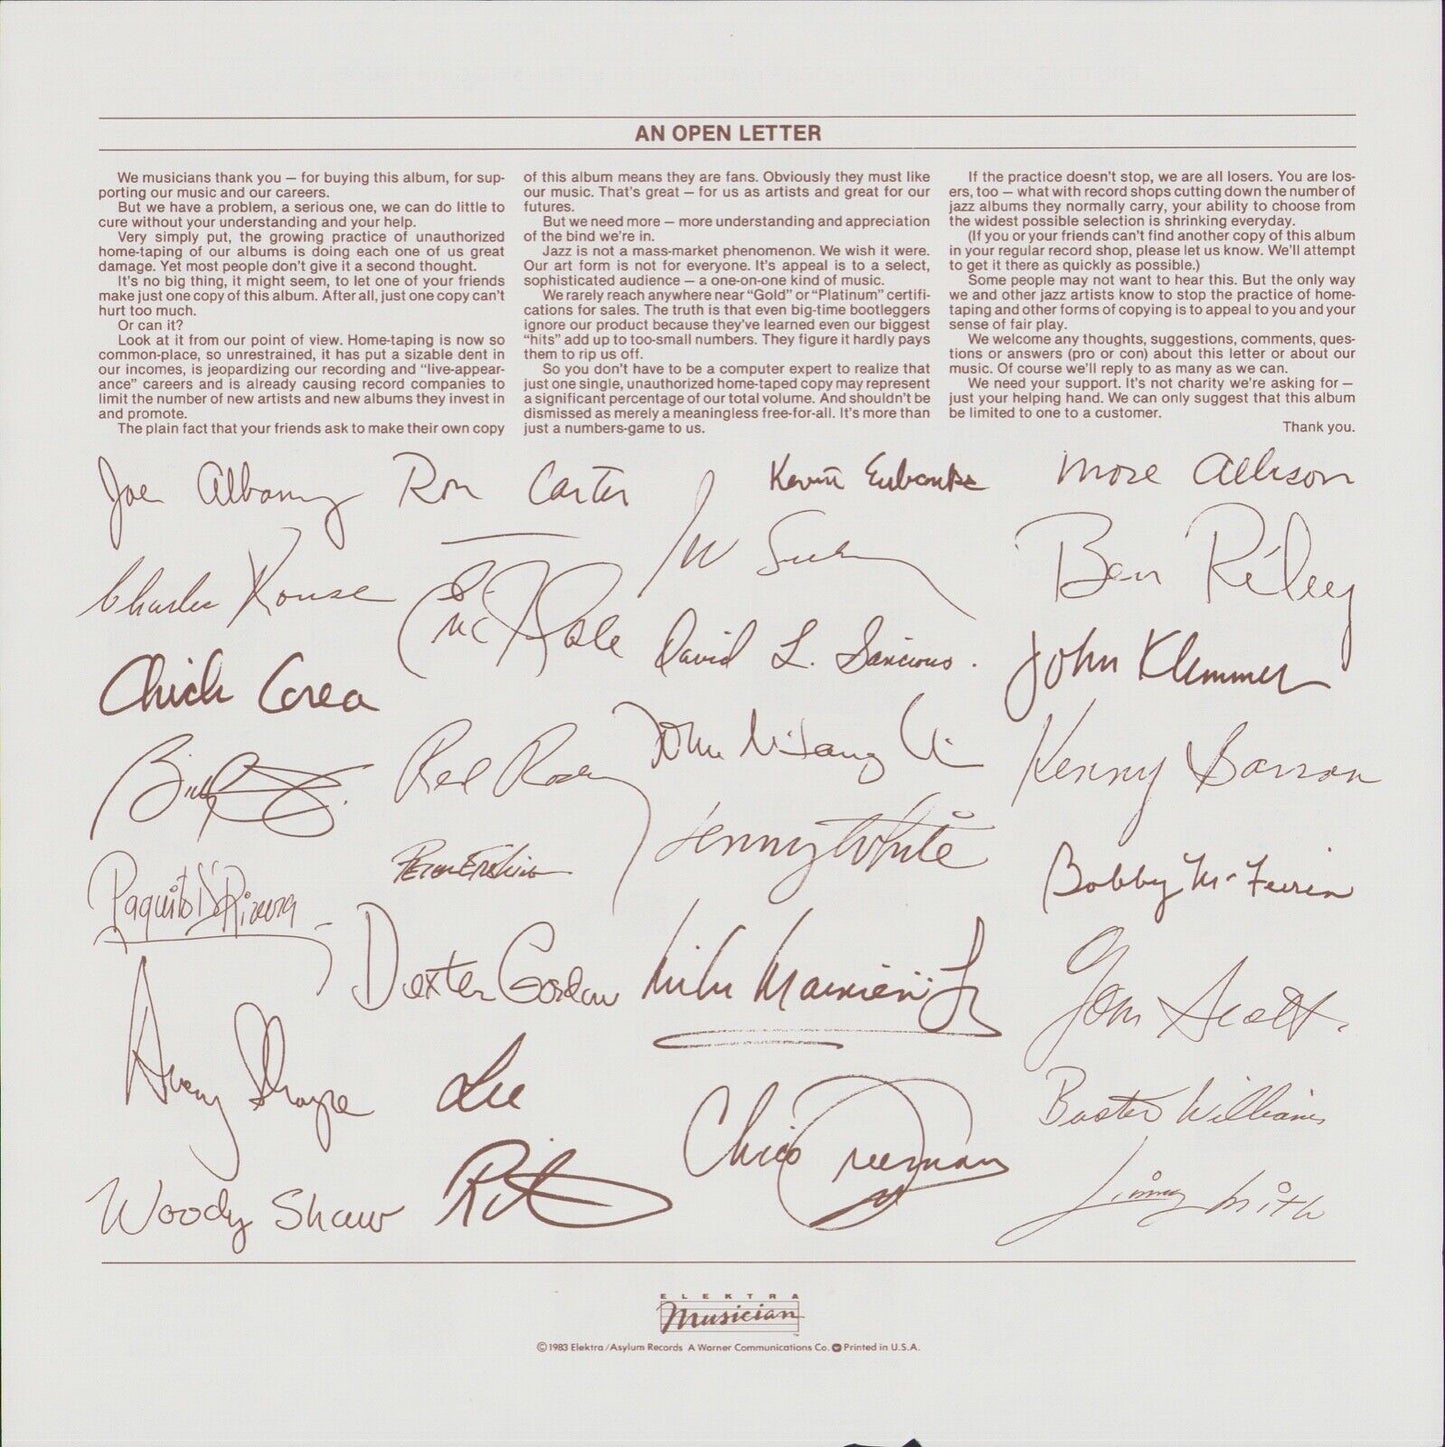 AN OPEN LETTER
We musicians thank you — for buying this album, for sup-
porting our music and our careers.
But we have a problem, a serious one, we can do little to
cure without your understanding and your help.
Very simply put, the growing practice of unauthorized
home-taping of our albums is doing each one of us great
damage. Yet most people don't give it a second thought.
It's no big thing, it might seem, to let one of your friends
make just one copy of this album. After all, just one copy can't
hurt too much.
Or can it?
Look at it from our point of view. Home-taping is now so
common-place, so unrestrained, it has put a sizable dent in
our incomes, is jeopardizing our recording and "live-appear-
ance" careers and is already causing record companies to
limit the number of new artists and new albums they invest in
and promote.
The plain fact that your friends ask to make their own copy
of this album means they are fans. Obviously they must like
our music. That's great — for us as artists and great for our
futures.
But we need more — more understanding and appreciation
of the bind we're in.
Jazz is not a mass-market phenomenon. We wish it were.
Our art form is not for everyone. It's appeal is to a select,
sophisticated audience — a one-on-one kind of music.
We rarely reach anywhere near "Gold" or "Platinum" certifi-
cations for sales. The truth is that even big-time bootleggers
ignore our product because they've learned even our biggest
"hits" add up to too-small numbers. They figure it hardly pays
them to rip us off.
So you don't have to be a computer expert to realize that
just one single, unauthorized home-taped copy may represent
a significant percentage of our total volume. And shouldn't be
dismissed as merely a meaningless free-for-all. It's more than
just a numbers-game to us.
If the practice doesn't stop, we are all losers. You are los-
ers, too — what with record shops cutting down the number of
jazz albums they normally carry, your ability to choose from
the widest possible selection is shrinking everyday.
(If you or your friends can't find another copy of this album
in your regular record shop, please let us know. We'll attempt
to get it there as quickly as possible.)
Some people may not want to hear this. But the only way
we and other jazz artists know to stop the practice of home-
taping and other forms of copying is to appeal to you and your
sense of fair play.
We welcome any thoughts, suggestions, comments, ques-
tions or answers (pro or con) about this letter or about our
music. Of course we'll reply to as many as we can.
We need your support. It's not charity we're asking for —
just your helping hand. We can only suggest that this album
be limited to one to a customer.
Thank you.
Joe Albany
Ron Carter
Kevin Eubanks
Mose Allison
Charlie Rouse
Ben Riley
David L. Sancious.
John Klemmer
Chick Corea
Bill
Red Rodney
John
Kenny Barron
Lenny White
Peter Erskine
Bobby McFerrin
Paquito D'Rivera
Dexter Gordon
Mike Mainieri Jr
Tom Scott.
Avery Sharpe
Lee
Rit
Chico Freeman
Buster Williams
Woody Shaw
Jimmy Smith
ELEKTRA
Musician
©1983 Elektra/Asylum Records A Warner Communications Co. Printed in U.S.A.